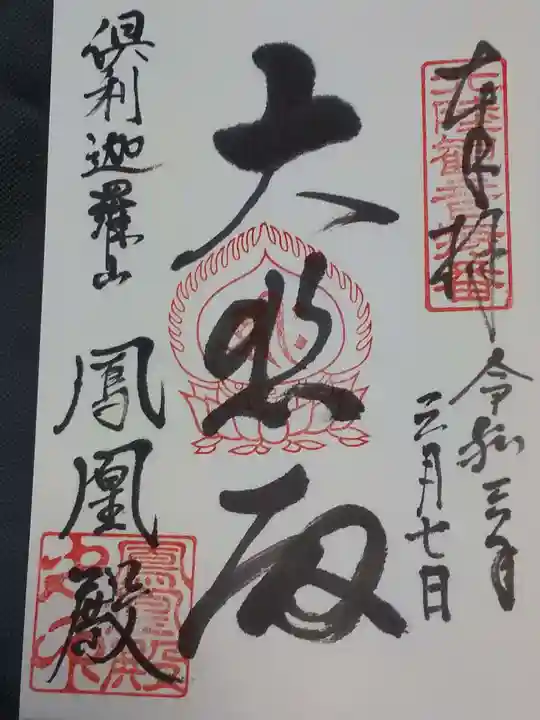 奉拝
令和三年
三月七日
大悲殿
倶利迦羅山
鳳凰殿
鳳凰殿